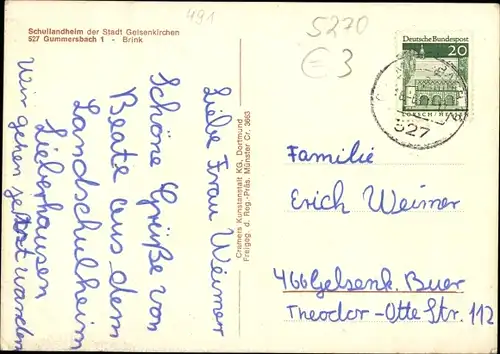 Schullandheim der Stadt Gelsenkirchen
527 Gummersbach 1 - Brink
491
5270
€3
Deutsche Bundespost
20
LORSCH/HESSEN
527
Liebe Frau Weimer
Schöne Grüße von
Beate aus dem
Landschulheim
Lieberhausen
Wir gehen jetzt wandern
Cramers Kunstanstalt KG, Dortmund
Freigeg. d. Reg.-Präs. Münster Cr. 3663
Familie
Erich Weimer
466 Gelsenk. Buer
Theodor-Otte-Str. 112